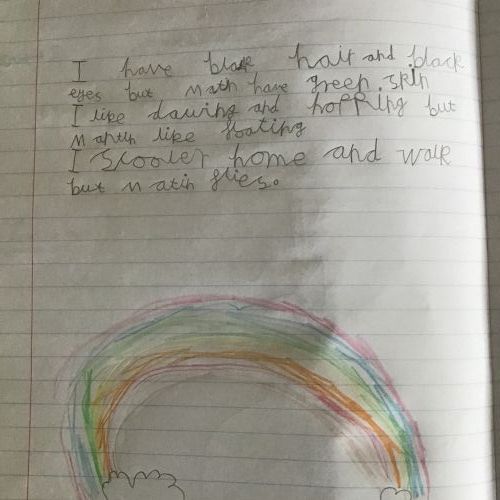 I have black hair and black
eyes but Matin have green skin
I like dawing and hopping but
Mantin like floating
I scooter home and walk
but Matin flies.